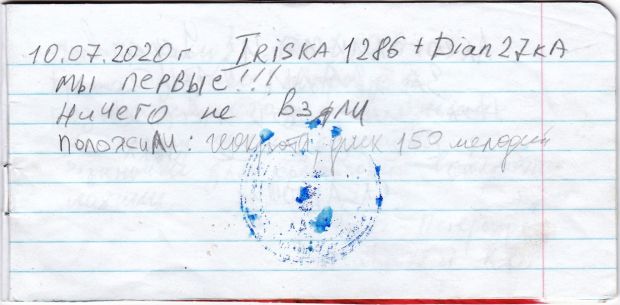 10.07.2020 г IRISKA 1286 + Dian27ка
мы первые!!!
ничего не взяли
положили: геокрот, диск 150 мелодий